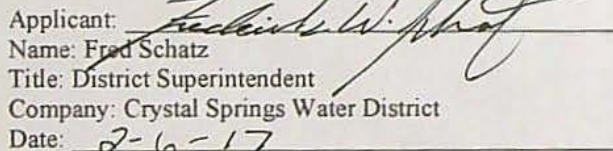 Applicant: Frederick W. Schatz
Name: Fred Schatz
Title: District Superintendent
Company: Crystal Springs Water District
Date: 2-6-17